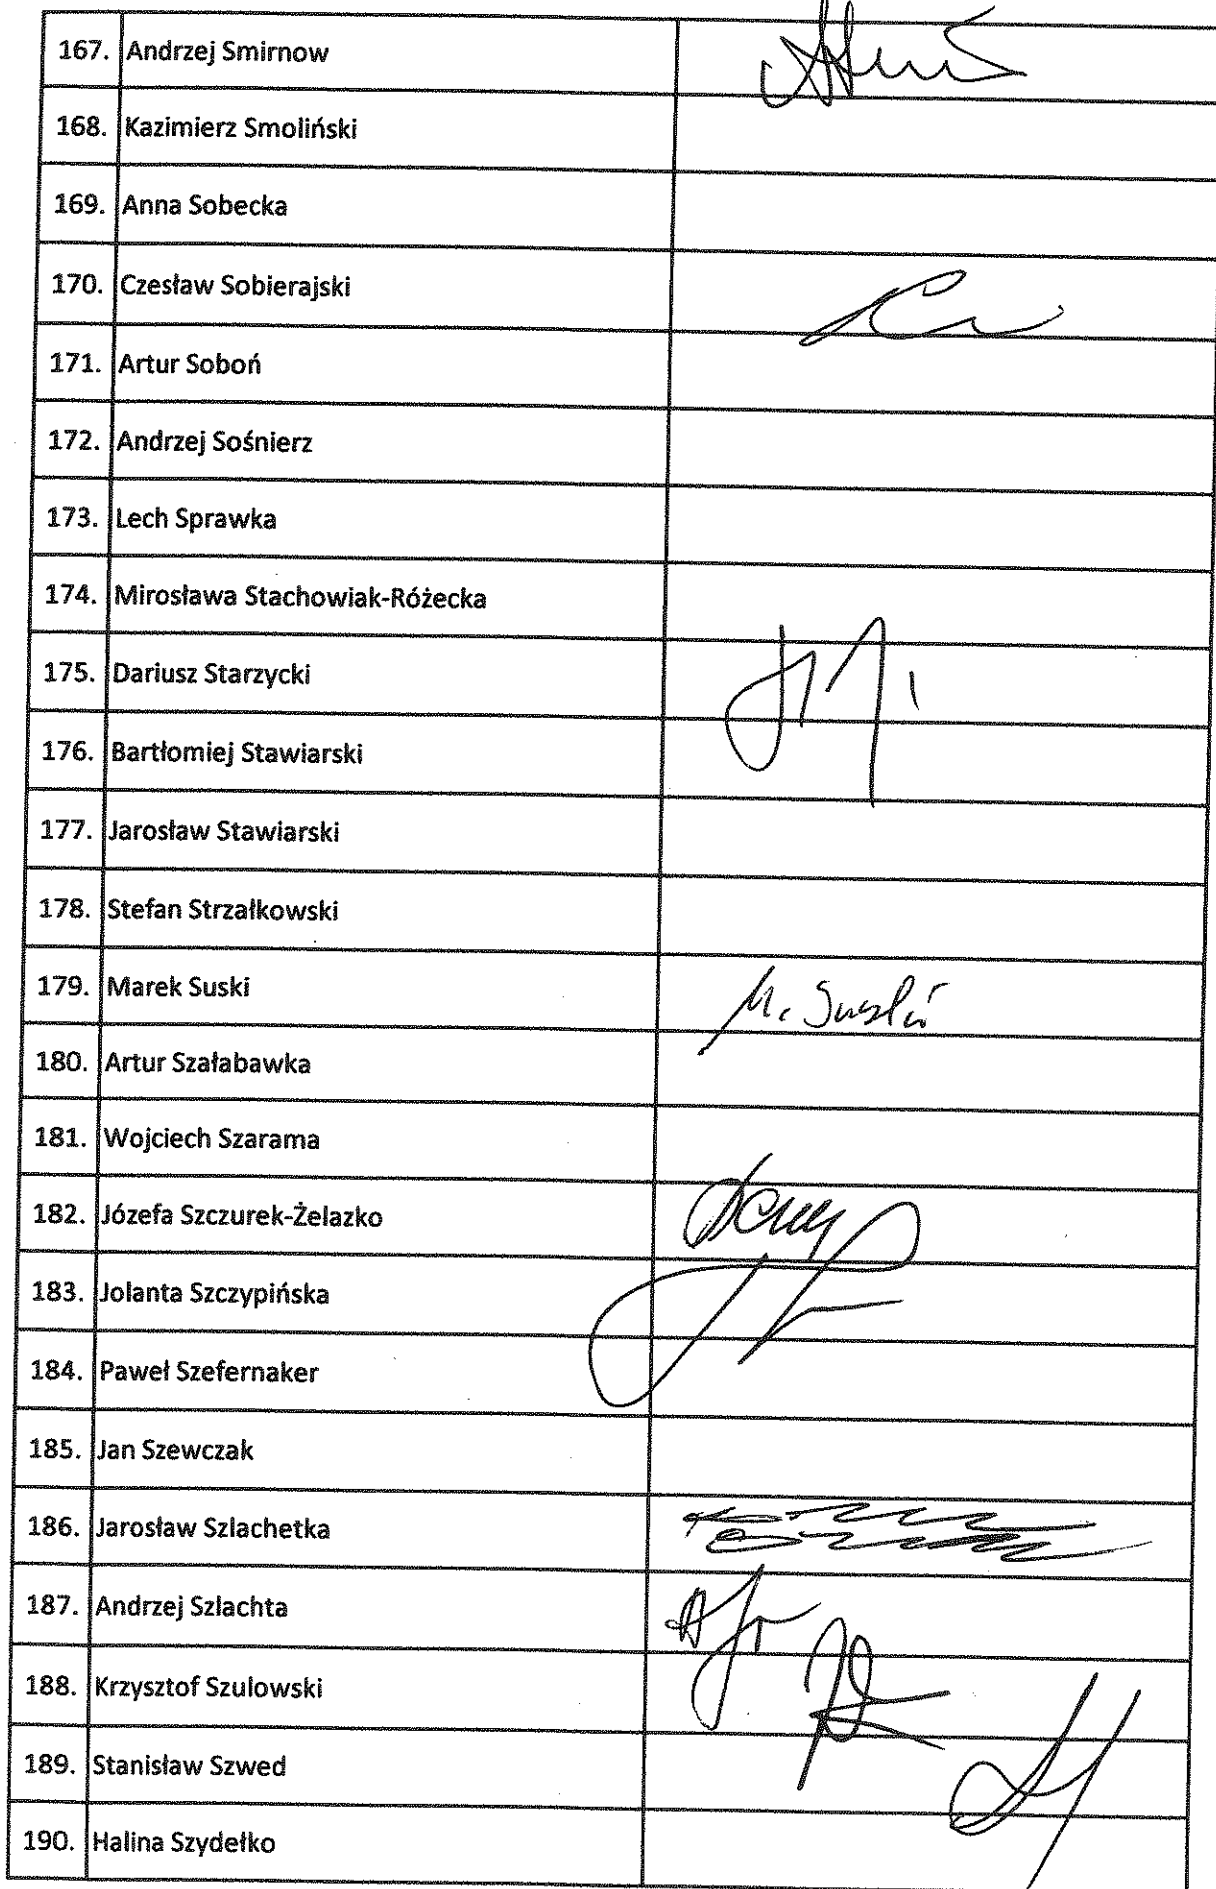 167. Andrzej Smirnow
168. Kazimierz Smoliński
169. Anna Sobecka
170. Czesław Sobierajski
171. Artur Soboń
172. Andrzej Sośnierz
173. Lech Sprawka
174. Mirosława Stachowiak-Różecka
175. Dariusz Starzycki
176. Bartłomiej Stawiarski
177. Jarosław Stawiarski
178. Stefan Strzałkowski
179. Marek Suski M. Suski
180. Artur Szałabawka
181. Wojciech Szarama
182. Józefa Szczurek-Żelazko
183. Jolanta Szczypińska
184. Paweł Szefernaker
185. Jan Szewczak
186. Jarosław Szlachetka
187. Andrzej Szlachta
188. Krzysztof Szulowski
189. Stanisław Szwed
190. Halina Szydełko